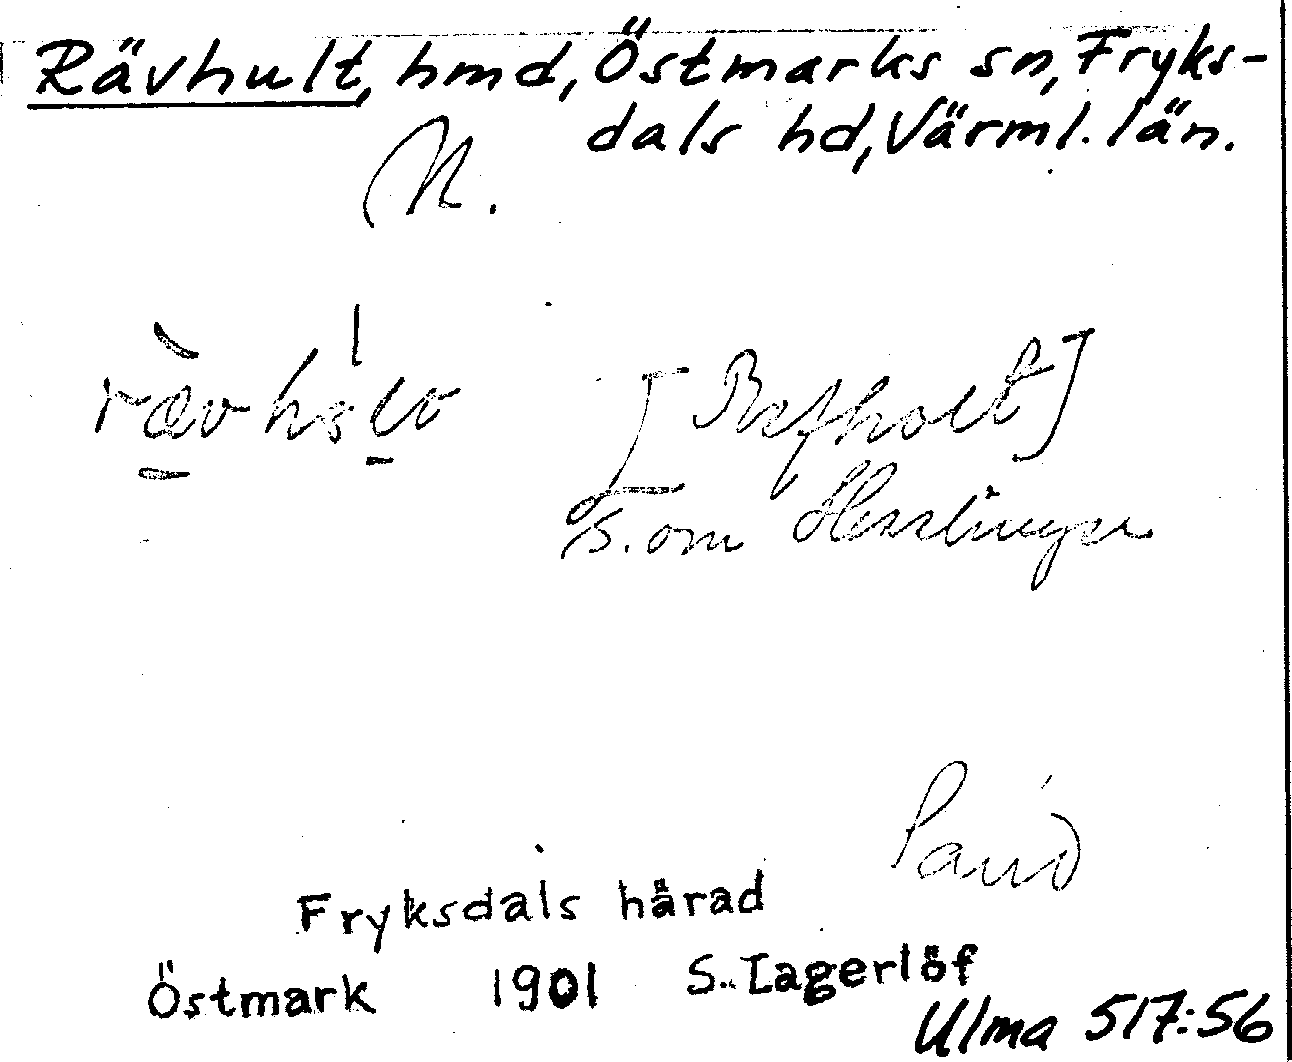 Rävhult, hmd, Östmarks sn, Fryks-
dals hd, Värml. län.
N.
[Refholt]
S. om Hesslingen
Fryksdals härad
Östmark 1901 S. Lagerlöf
Ulma 517:56